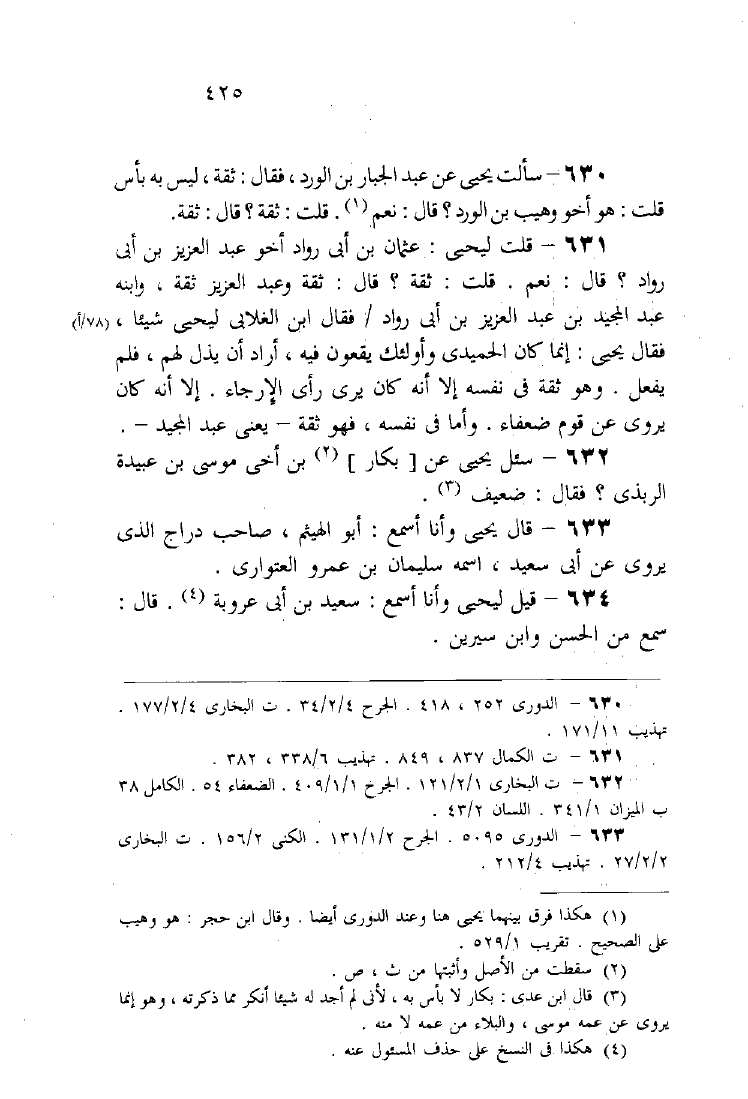 ٤٢٥
٦٣٠ – سألت يحيى عن عبد الجبار بن الورد ، فقال : ثقة ، ليس به بأس
قلت : هو أخو وهيب بن الورد ؟ قال : نعم (١) . قلت : ثقة ؟ قال : ثقة.
٦٣١ – قلت ليحيى : عثمان بن أبى رواد أخو عبد العزيز بن أبى
رواد ؟ قال : نعم . قلت : ثقة ؟ قال : ثقة وعبد العزيز ثقة ، وابنه
عبد المجيد بن عبد العزيز بن أبى رواد / فقال ابن الغلابى ليحيى شيئا ، (٧٨/أ)
فقال يحيى : إنما كان الحميدى وأولئك يقعون فيه ، أراد أن يذل لهم ، فلم
يفعل . وهو ثقة فى نفسه إلا أنه كان يرى رأى الإرجاء . إلا أنه كان
يروى عن قوم ضعفاء . وأما فى نفسه ، فهو ثقة – يعنى عبد المجيد – .
٦٣٢ – سئل يحيى عن [ بكار ] (٢) بن أخى موسى بن عبيدة
الربذى ؟ فقال : ضعيف (٣) .
٦٣٣ – قال يحيى وأنا أسمع : أبو الهيثم ، صاحب دراج الذى
يروى عن أبى سعيد ، اسمه سليمان بن عمرو العتوارى .
٦٣٤ – قيل ليحيى وأنا أسمع : سعيد بن أبى عروبة (٤) . قال :
سمع من الحسن وابن سيرين .
٦٣٠ – الدورى ٢٥٢ ، ٤١٨ . الجرح ٣٤/٢/٤ . ت البخارى ١٧٧/٢/٤ .
تهذيب ١٧١/١١ .
٦٣١ – ت الكمال ٨٣٧ ، ٨٤٩ . تهذيب ٣٣٨/٦ ، ٣٨٢ .
٦٣٢ – ت البخارى ١٢١/٢/١ . الجرح ٤٠٩/١/١ . الضعفاء ٥٤ . الكامل ٣٨
ب الميزان ٣٤١/١ . اللسان ٤٣/٢ .
٦٣٣ – الدورى ٥٠٩٥ . الجرح ١٣١/١/٢ . الكنى ١٥٦/٢ . ت البخارى
٢٧/٢/٢ . تهذيب ٢١٢/٤ .
(١) هكذا فرق بينهما يحيى هنا وعند الدورى أيضا . وقال ابن حجر : هو وهيب
على الصحيح . تقريب ٥٢٩/١ .
(٢) سقطت من الأصل وأثبتها من ث ، ص .
(٣) قال ابن عدى : بكار لا بأس به ، لأنى لم أجد له شيئا أنكر مما ذكرته ، وهو إنما
يروى عن عمه موسى ، والبلاء من عمه لا منه .
(٤) هكذا فى النسخ على حذف المسئول عنه .